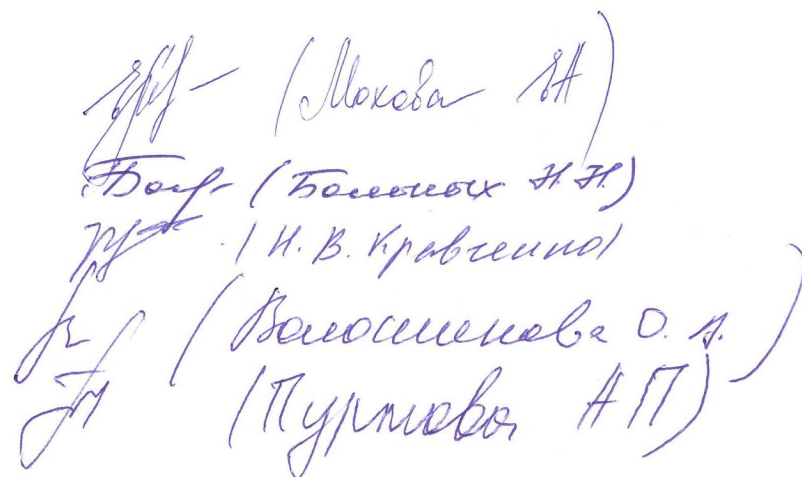 (Мохова ЕА)
(Больных Н.Н.)
(Н.В. Кравченко)
(Волошенкова О.А.)
(Пуртова АП)